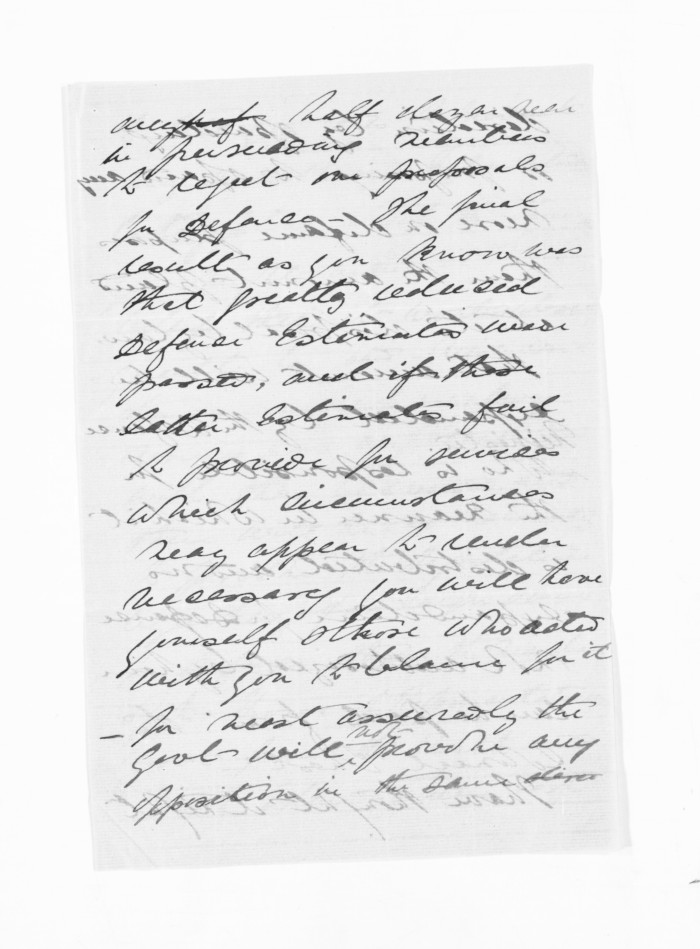 any half dozen men
in persuading members
to reject our proposals
for Defence - The final
result as you know was
that greatly reduced
Defence Estimates were
passed, and if these
latter Estimates fail
to provide for services
which circumstances
may appear to render
necessary you will have
yourself & those who acted
with you to blame for it
- for most assuredly the
Govt will not provoke any
opposition in the same